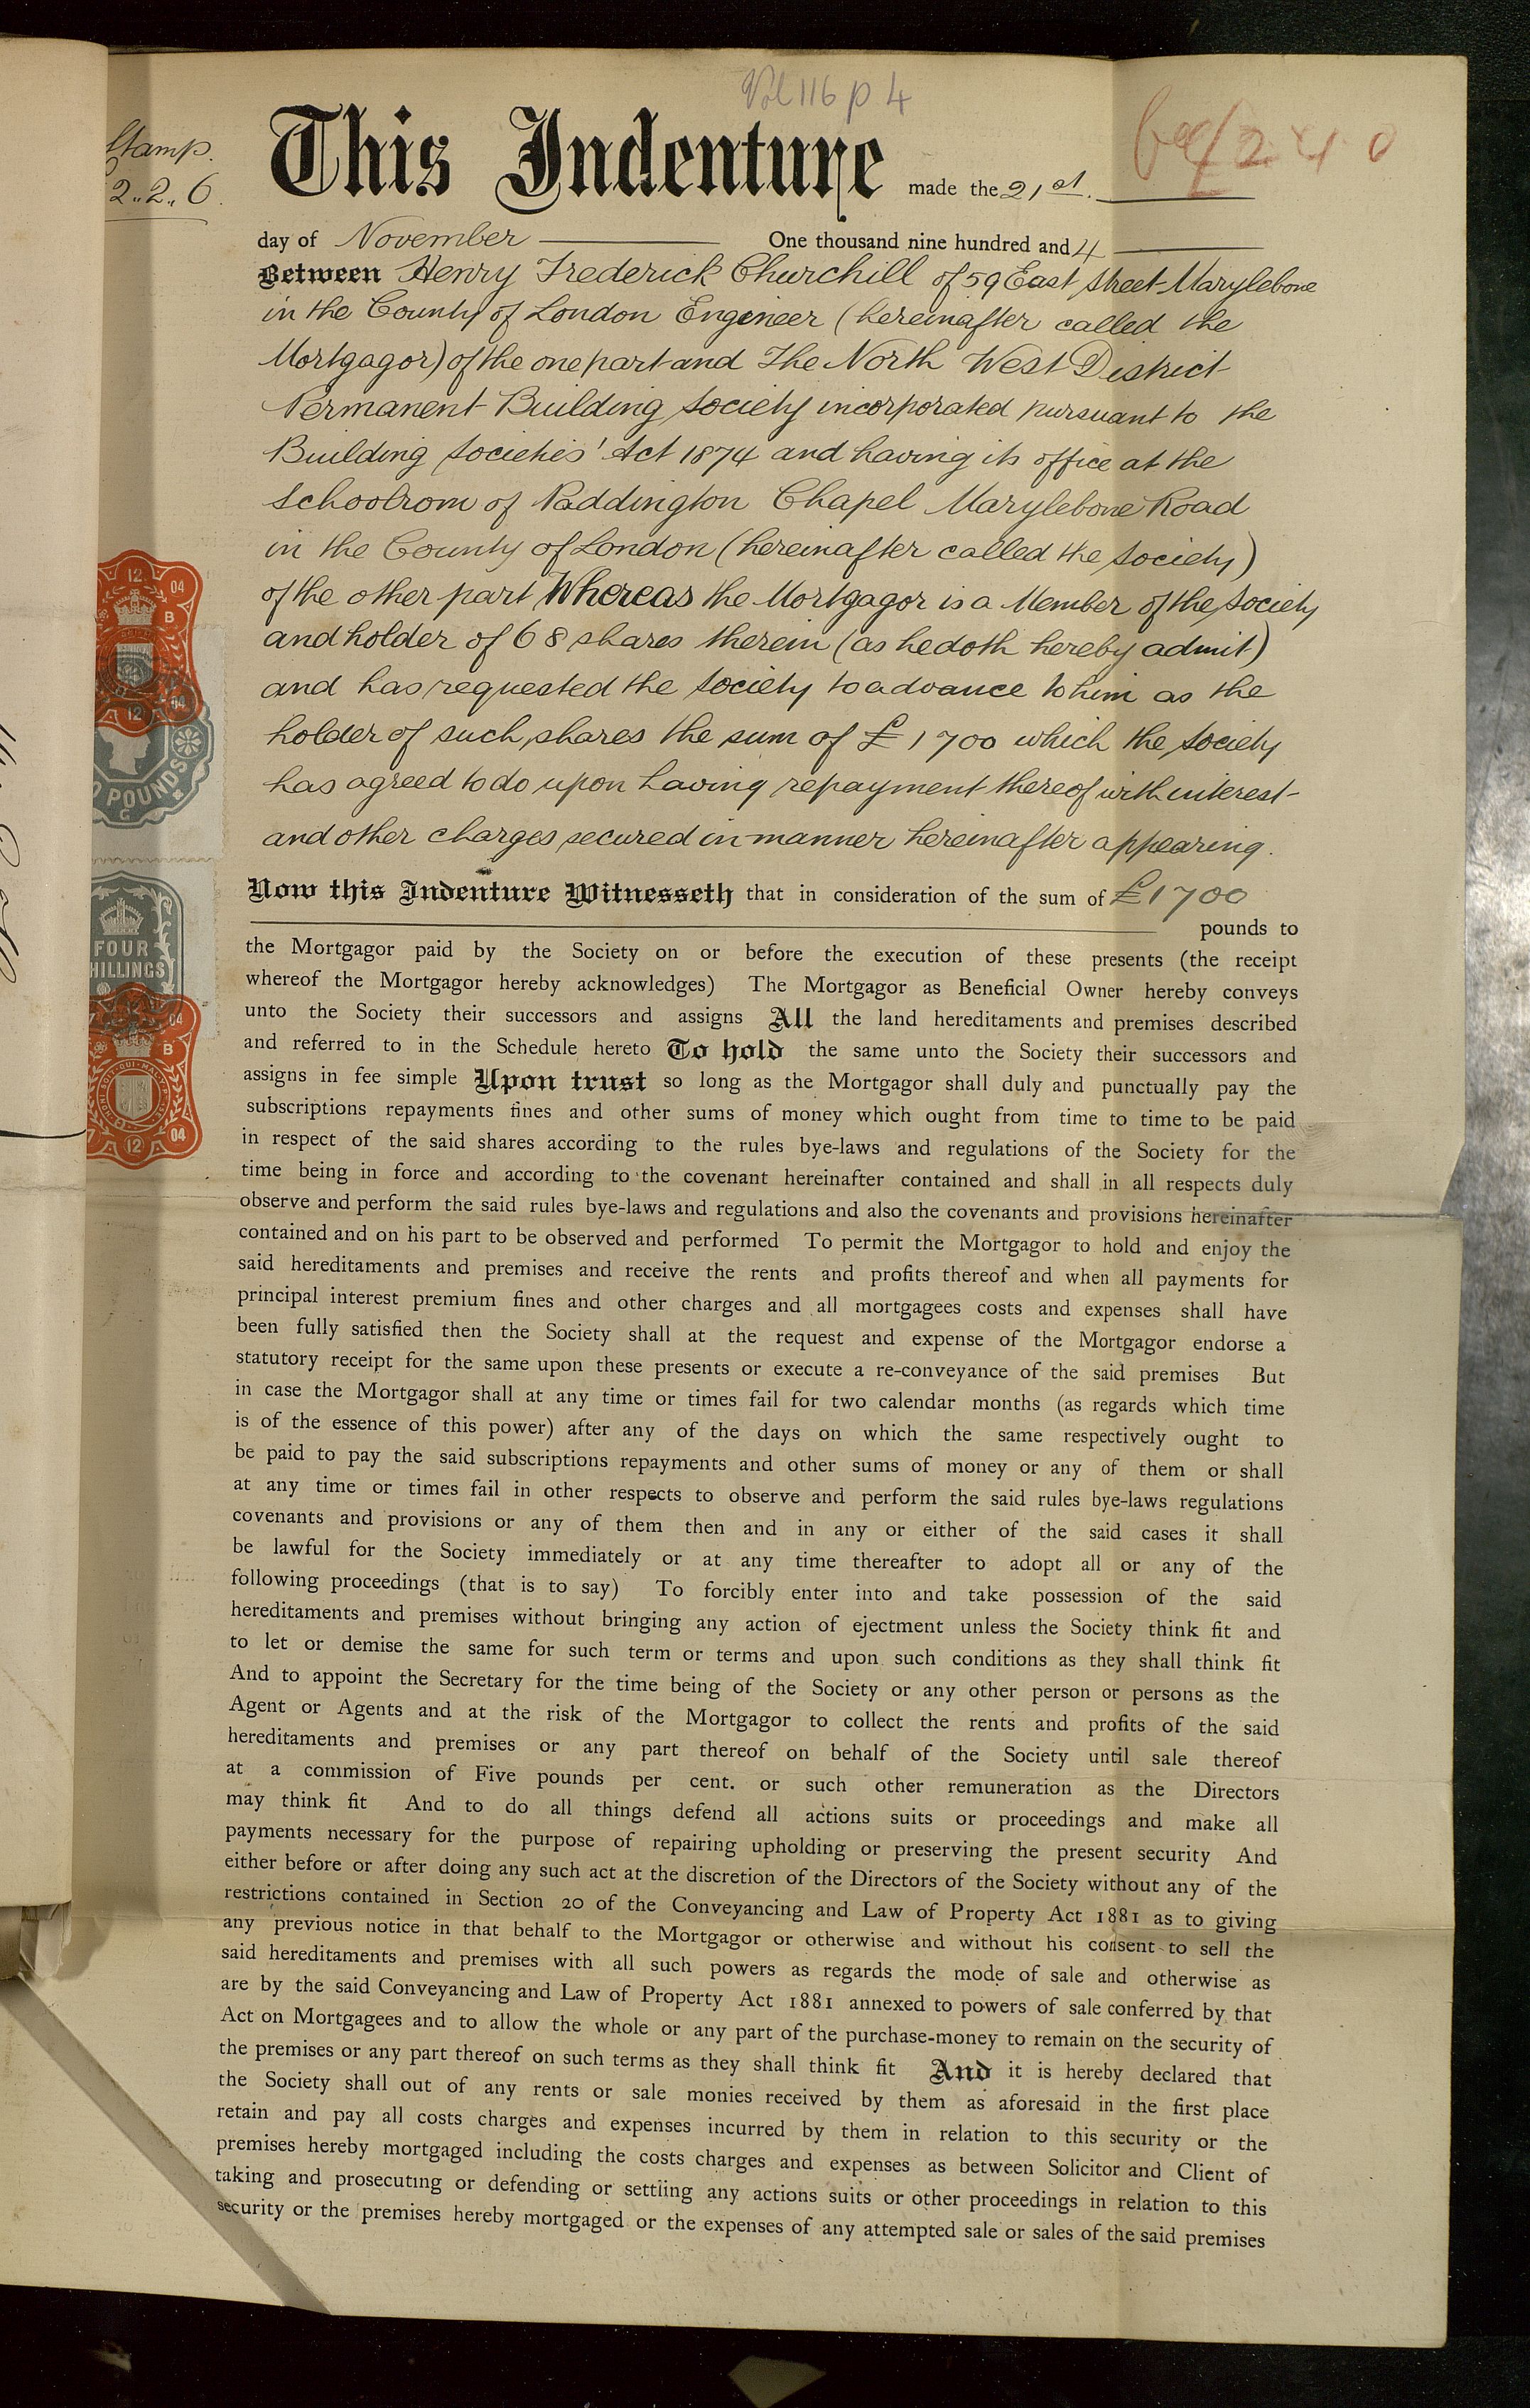 Vol 116 p. 4
Stamp.
2.. 2.. 6.
This Indenture made the 21st.
day of November One thousand nine hundred and 4
Between Henry Frederick Churchill of 59 East Street Marylebone
in the County of London Engineer (hereinafter called the
Mortgagor) of the one part and The North West District
Permanent Building Society incorporated pursuant to the
Building Societies' Act 1874 and having its office at the
Schoolroom of Paddington Chapel Marylebone Road
in the County of London (hereinafter called the Society)
of the other part Whereas the Mortgagor is a Member of the Society
and holder of 68 shares therein (as he doth hereby admit)
and has requested the Society to advance to him as the
holder of such shares the sum of £1700 which the Society
has agreed to do upon having repayment thereof with interest
and other charges secured in manner hereinafter appearing.
Now this Indenture Witnesseth that in consideration of the sum of £1700
pounds to
the Mortgagor paid by the Society on or before the execution of these presents (the receipt
whereof the Mortgagor hereby acknowledges) The Mortgagor as Beneficial Owner hereby conveys
unto the Society their successors and assigns All the land hereditaments and premises described
and referred to in the Schedule hereto To hold the same unto the Society their successors and
assigns in fee simple Upon trust so long as the Mortgagor shall duly and punctually pay the
subscriptions repayments fines and other sums of money which ought from time to time to be paid
in respect of the said shares according to the rules bye-laws and regulations of the Society for the
time being in force and according to the covenant hereinafter contained and shall in all respects duly
observe and perform the said rules bye-laws and regulations and also the covenants and provisions hereinafter
contained and on his part to be observed and performed To permit the Mortgagor to hold and enjoy the
said hereditaments and premises and receive the rents and profits thereof and when all payments for
principal interest premium fines and other charges and all mortgagees costs and expenses shall have
been fully satisfied then the Society shall at the request and expense of the Mortgagor endorse a
statutory receipt for the same upon these presents or execute a re-conveyance of the said premises But
in case the Mortgagor shall at any time or times fail for two calendar months (as regards which time
is of the essence of this power) after any of the days on which the same respectively ought to
be paid to pay the said subscriptions repayments and other sums of money or any of them or shall
at any time or times fail in other respects to observe and perform the said rules bye-laws regulations
covenants and provisions or any of them then and in any or either of the said cases it shall
be lawful for the Society immediately or at any time thereafter to adopt all or any of the
following proceedings (that is to say) To forcibly enter into and take possession of the said
hereditaments and premises without bringing any action of ejectment unless the Society think fit and
to let or demise the same for such term or terms and upon such conditions as they shall think fit
And to appoint the Secretary for the time being of the Society or any other person or persons as the
Agent or Agents and at the risk of the Mortgagor to collect the rents and profits of the said
hereditaments and premises or any part thereof on behalf of the Society until sale thereof
at a commission of Five pounds per cent. or such other remuneration as the Directors
may think fit And to do all things defend all actions suits or proceedings and make all
payments necessary for the purpose of repairing upholding or preserving the present security And
either before or after doing any such act at the discretion of the Directors of the Society without any of the
restrictions contained in Section 20 of the Conveyancing and Law of Property Act 1881 as to giving
any previous notice in that behalf to the Mortgagor or otherwise and without his consent to sell the
said hereditaments and premises with all such powers as regards the mode of sale and otherwise as
are by the said Conveyancing and Law of Property Act 1881 annexed to powers of sale conferred by that
Act on Mortgagees and to allow the whole or any part of the purchase-money to remain on the security of
the premises or any part thereof on such terms as they shall think fit And it is hereby declared that
the Society shall out of any rents or sale monies received by them as aforesaid in the first place
retain and pay all costs charges and expenses incurred by them in relation to this security or the
premises hereby mortgaged including the costs charges and expenses as between Solicitor and Client of
taking and prosecuting or defending or settling any actions suits or other proceedings in relation to this
security or the premises hereby mortgaged or the expenses of any attempted sale or sales of the said premises
12 04
B
12 04
POUNDS
G
FOUR
SHILLINGS
04
B
12 04